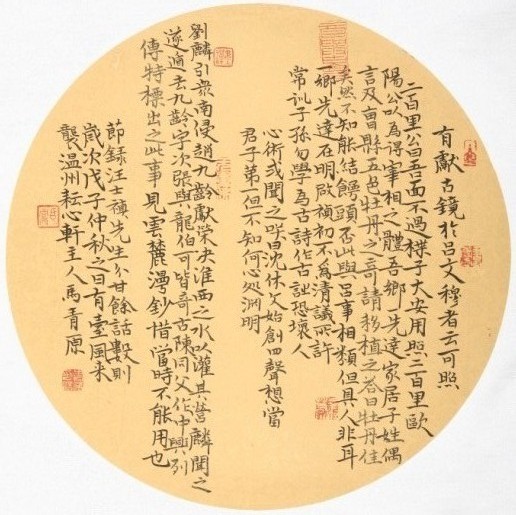 有獻古鏡於呂文穆者云可照
二百里公曰吾面不過楪子大安用照二百里歐
陽公以為得宰相之體吾鄉先達家居子姓偶
言及曹縣五色牡丹之奇請移植之答曰牡丹佳
矣然不知能結餑頭否此與呂事相類但其人非耳
一鄉先達在明啟禎初不為清議所許
常訓子孫勿學為古詩作古詩恐壞人
心術或聞之咲曰沈休文始創四聲想當
君子第但不知何心処淵明
劉麟引眾南侵趙九齡獻策決淮西之水以灌其營麟聞之
遂遁去九齡字次張與龍伯可皆奇士陳同父作中興列
傳特標出之此事見雲麓漫鈔惜當時不能用也
節錄汪士禎先生分甘餘話數則
歲次戊子仲秋之日有臺風來
襲溫州耘心軒主人馬青源